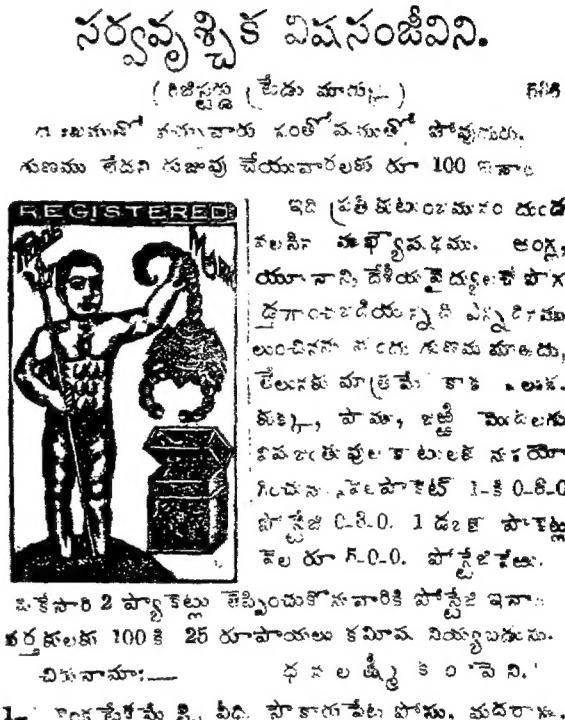 సర్వవృశ్చిక విషసంజీవిని.
(రిజిష్టర్డు ట్రేడు మార్కు)
సంతోషముతో పోవుదురు.
గుణము లేదని రుజువు చేయువారలకు రూ 100 ఇనాం
REGISTERED
ఇది ప్రతి కుటుంబమునం దుండ
వలసిన ముఖ్యౌషధము. ఆంగ్ల,
యూనాని, దేశీయ వైద్యులచే పొగ
డ్తగాంచబడియున్నది ఎన్నిదినము
లుంచినను గుణము మారదు,
తేలునకు మాత్రమే కాక
కుక్క, పాము, జఱ్ఱి మొదలగు
విషజంతువుల కాటులకు నుపయో
గించును. వెల పాకెట్ 1-కి 0-8-0
పోస్టేజి 0-8-0. 1 డజను పాకెట్లు
వెల రూ 5-0-0. పోస్టేజి వేఱు.
ఒకేసారి 2 ప్యాకెట్లు తెప్పించుకొనువారికి పోస్టేజి ఇనాం
వర్తకులకు 100 కి 25 రూపాయలు కమీషను నియ్యబడును.
చిరునామా:—
ధనలక్ష్మీ కంపెని.
వీధి, సౌకారుపేట పోస్టు, మదరాసు.